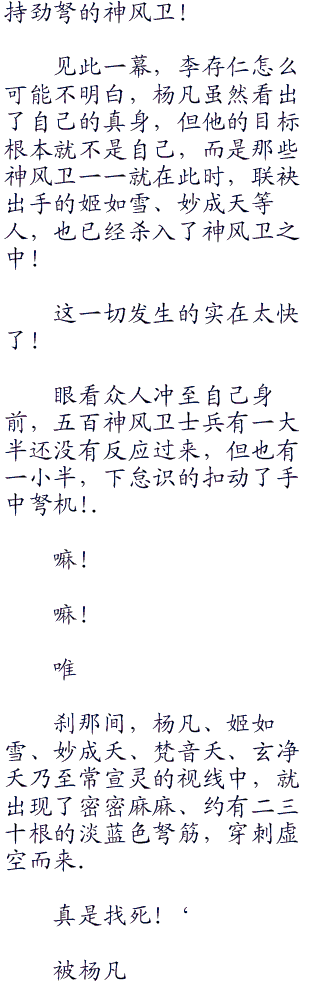 持劲弩的神风卫！
见此一幕，李存仁怎么
可能不明白，杨凡虽然看出
了自己的真身，但他的目标
根本就不是自己，而是那些
神风卫一一就在此时，联袂
出手的姬如雪、妙成天等
人，也已经杀入了神风卫之
中！
这一切发生的实在太快
了！
眼看众人冲至自己身
前，五百神风卫士兵有一大
半还没有反应过来，但也有
一小半，下怠识的扣动了手
中弩机!.
嘛！
嘛！
唯
刹那间，杨凡、姬如
雪、妙成天、梵音天、玄净
天乃至常宣灵的视线中，就
出现了密密麻麻、约有二三
十根的淡蓝色弩筋，穿刺虚
空而来.
真是找死！‘
被杨凡